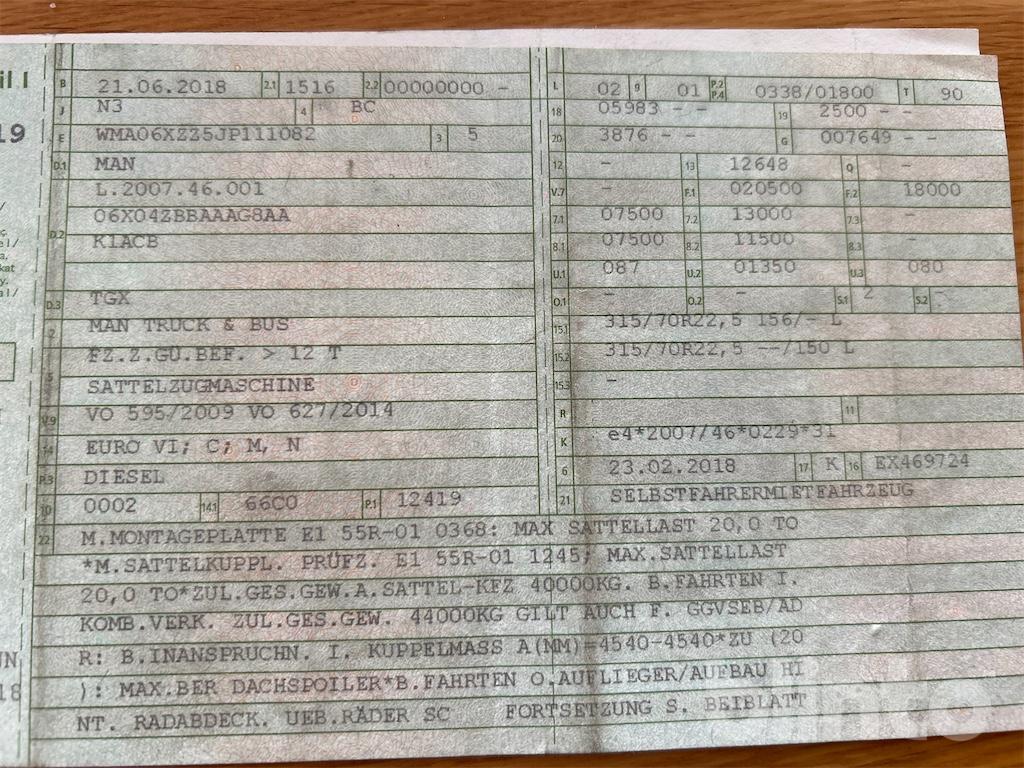 il I
19
B 21.06.2018 2.1 1516 2.2 00000000 -
J N3 4 BC
E WMA06XZZ5JP111082 3 5
D.1 MAN
L.2007.46.001
D.2 06X04ZBBAAAG8AA
K1ACB
D.3 TGX
2 MAN TRUCK & BUS
5 FZ.Z.GÜ.BEF. > 12 T
SATTELZUGMASCHINE
V.9 VO 595/2009 VO 627/2014
14 EURO VI; C; M, N
P.3 DIESEL
10 0002 14.1 66C0 P.1 12419
L 02 9 01 P.2 P.4 0338/01800 T 90
18 05983 - - 19 2500 - -
20 3876 - - G 007649 - -
12 - 13 12648 Q -
V.7 - F.1 020500 F.2 18000
7.1 07500 7.2 13000 7.3 -
8.1 07500 8.2 11500 8.3 -
U.1 087 U.2 01350 U.3 080
O.1 - O.2 - S.1 2 S.2 -
15.1 315/70R22,5 156/- L
15.2 315/70R22,5 --/150 L
15.3 -
R 11
K e4*2007/46*0229*31
6 23.02.2018 17 K 16 EX469724
21 SELBSTFAHRERMIETFAHRZEUG
22 M.MONTAGEPLATTE E1 55R-01 0368: MAX SATTELLAST 20,0 TO
*M.SATTELKUPPL. PRÜFZ. E1 55R-01 1245; MAX.SATTELLAST
20,0 TO*ZUL.GES.GEW.A.SATTEL-KFZ 40000KG. B.FAHRTEN I.
KOMB.VERK. ZUL.GES.GEW. 44000KG GILT AUCH F. GGVSEB/AD
R: B.INANSPRUCHN. I. KUPPELMASS A(MM)=4540-4540*ZU (20
): MAX.BER DACHSPOILER*B.FAHRTEN O.AUFLIEGER/AUFBAU HI
NT. RADABDECK. UEB.RÄDER SC FORTSETZUNG S. BEIBLATT